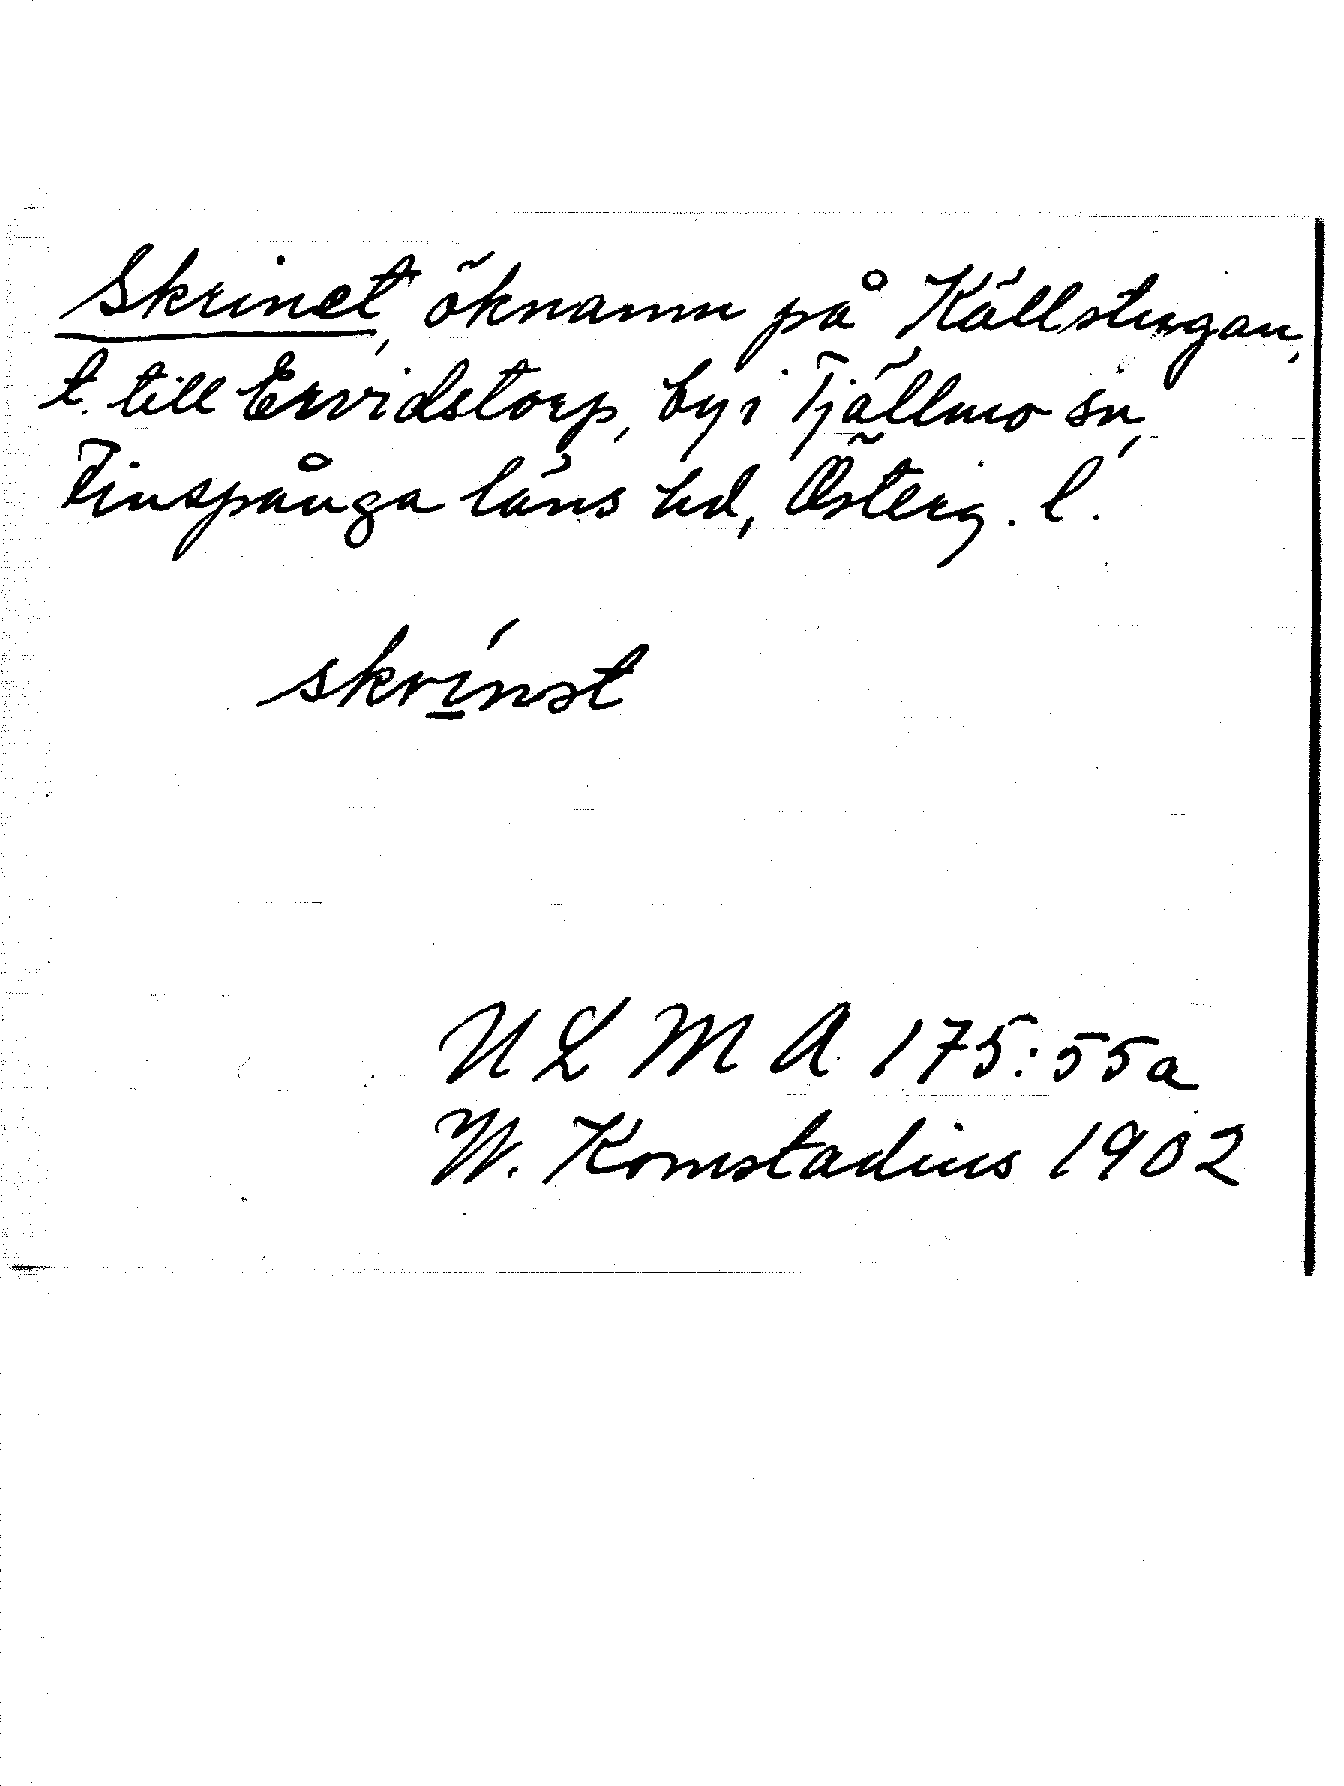 Skrinet, öknamn på Källstugan,
t. till Ervidstorp, by i Tjällmo sn,
Finspånga läns hd, Österg. l.
skrinət
ULMA 175:55a
W. Komstadius 1902